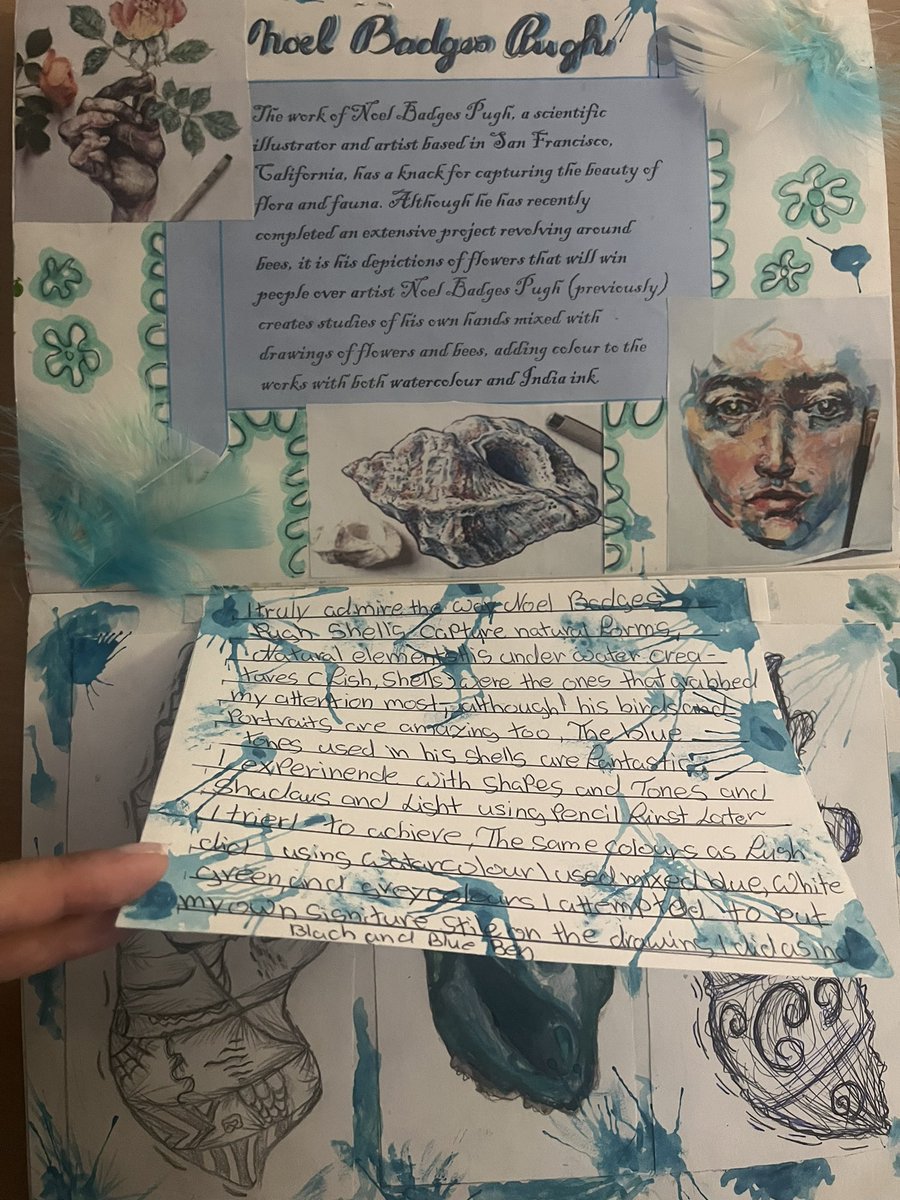 Noel Badges Pugh
The work of Noel Badges Pugh, a scientific
illustrator and artist based in San Francisco,
California, has a knack for capturing the beauty of
flora and fauna. Although he has recently
completed an extensive project revolving around
bees, it is his depictions of flowers that will win
people over artist Noel Badges Pugh (previously)
creates studies of his own hands mixed with
drawings of flowers and bees, adding colour to the
works with both watercolour and India ink.
I truly admire the way Noel Badges
Pugh Shells Capture natural forms,
Natural elements his under water crea-
tures (Fish, Shells) were the ones that grabbed
my attention most, although his birds and
Portraits are amazing too, The blue
tones used in his shells are fantastic
I experinende with Shapes and Tones and
Shadaws and Light using Pencil First Later
I tried to achieve, The same colours as Push
did using watarcolour I used mixed blue, White
green and grey colours I attempted to put
my own signiture stile on the drawing I did as nd
Black and Blue Pen